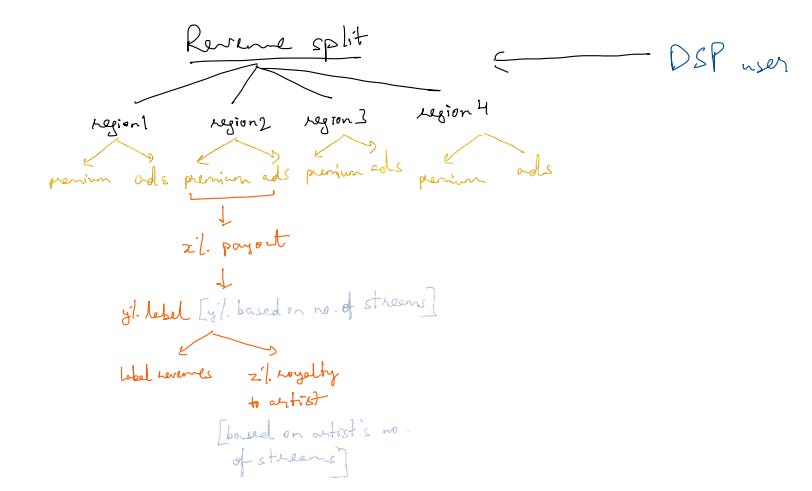 Revenue split
DSP user
region1 region2 region3 region4
premium ads premium ads premium ads premium ads
x% payout
y% label [y% based on no. of streams]
label revenues z% royalty
to artist
[based on artist's no.
of streams]